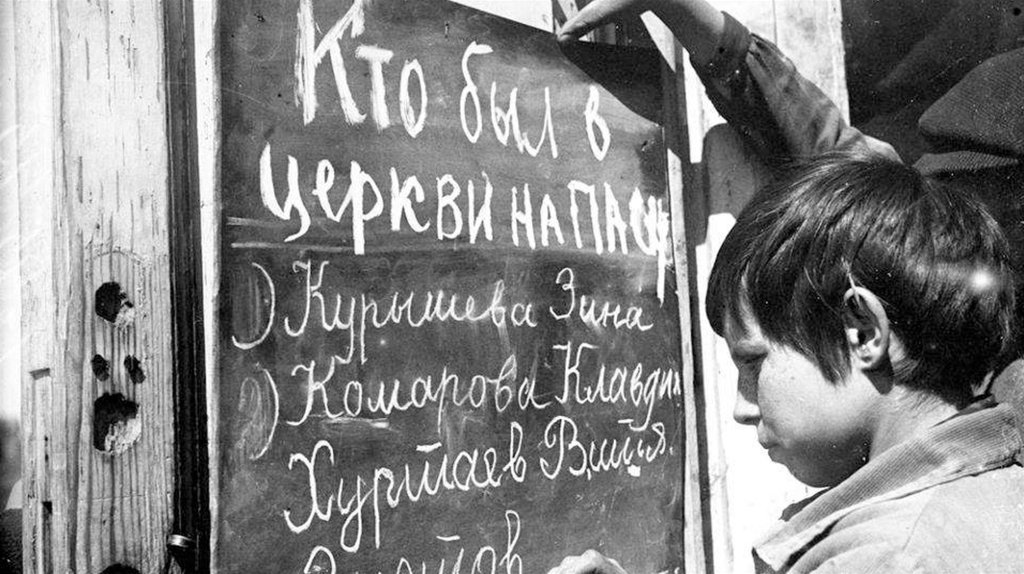 Кто был в
церкви на пасц
) Курышева Зина
) Комарова Клавдия
Хуртаев Витя.